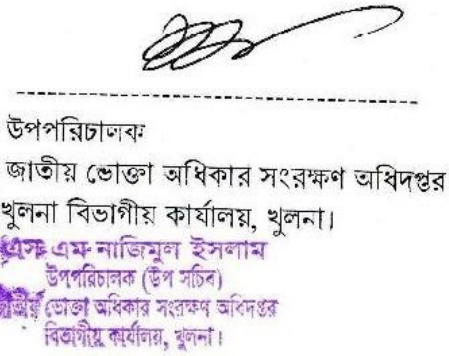 উপপরিচালক
জাতীয় ভোক্তা অধিকার সংরক্ষণ অধিদপ্তর
খুলনা বিভাগীয় কার্যালয়, খুলনা।
এস এম নাজিমুল ইসলাম
উপপরিচালক (উপ সচিব)
জাতীয় ভোক্তা অধিকার সংরক্ষণ অধিদপ্তর
বিভাগীয় কার্যালয়, খুলনা।